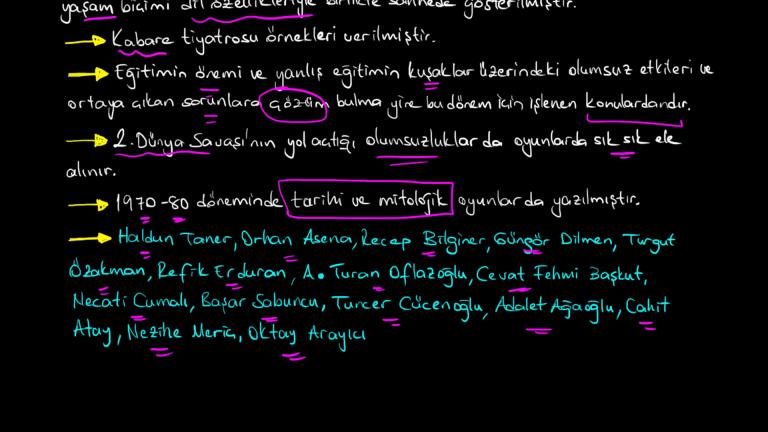 yaşam biçimi dil özellikleriyle birlikte sahnede gösterilmiştir.
Kabare tiyatrosu örnekleri verilmiştir.
Eğitimin önemi ve yanlış eğitimin kuşaklar üzerindeki olumsuz etkileri ve
ortaya çıkan sorunlara çözüm bulma yine bu dönem için işlenen konulardandır.
2. Dünya Savaşı'nın yol açtığı olumsuzluklar da oyunlarda sık sık ele
alınır.
1970-80 döneminde tarihi ve mitolojik oyunlar da yazılmıştır.
Haldun Taner, Orhan Asena, Recep Bilginer, Güngör Dilmen, Turgut
Özakman, Refik Erduran, A. Turan Oflazoğlu, Cevat Fehmi Başkut,
Necati Cumalı, Başar Sabuncu, Tuncer Cücenoğlu, Adalet Ağaoğlu, Cahit
Atay, Nezihe Meriç, Oktay Arayıcı